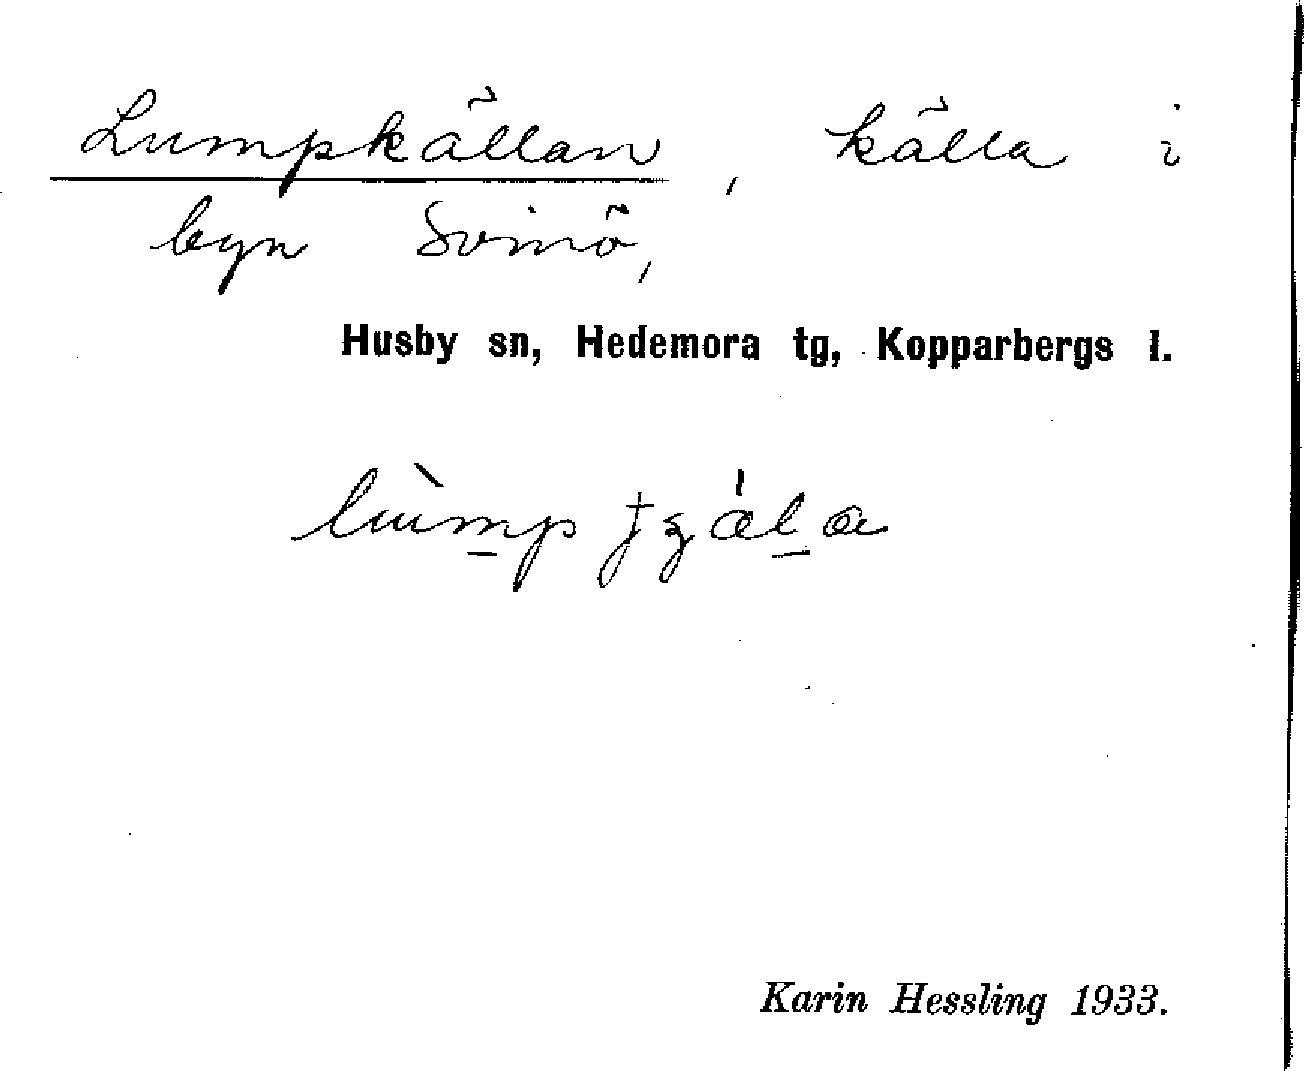 Lumpkällan, källa i
byn Svinö,
Husby sn, Hedemora tg, Kopparbergs l.
Karin Hessling 1933.